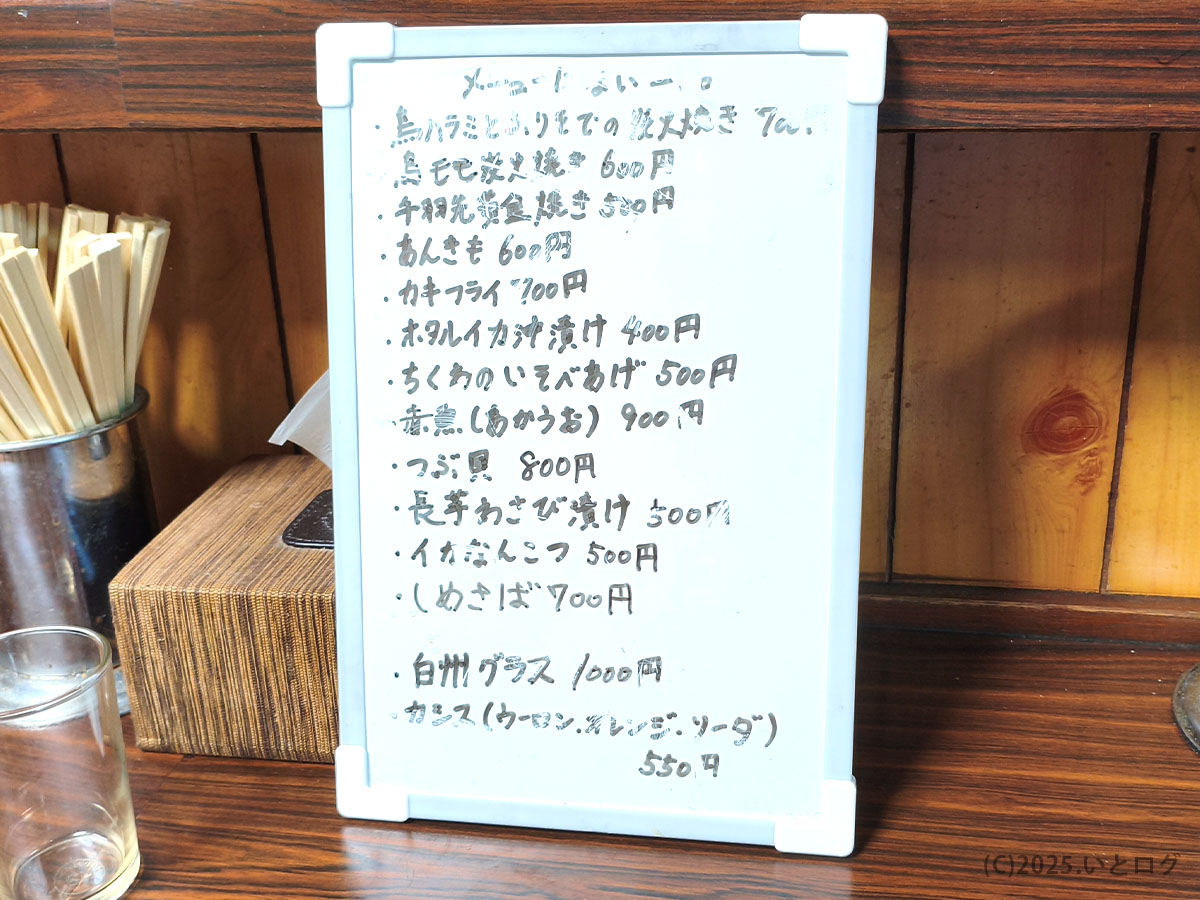 メニューにはない一品
・鳥ハラミとふりそでの炭火焼き 700
鳥モモ炭火焼き 600円
・手羽先黄金焼き 500円
・あんきも 600円
・カキフライ 700円
・ホタルイカ沖漬け 400円
・ちくわのいそべあげ 500円
・赤魚(あかうお) 900円
・つぶ貝 800円
・長芋わさび漬け 500円
・イカなんこつ 500円
・しめさば 700円
・白州グラス 1000円
・カシス(ウーロン.オレンジ.ソーダ)
550円
(C)2025.いとログ